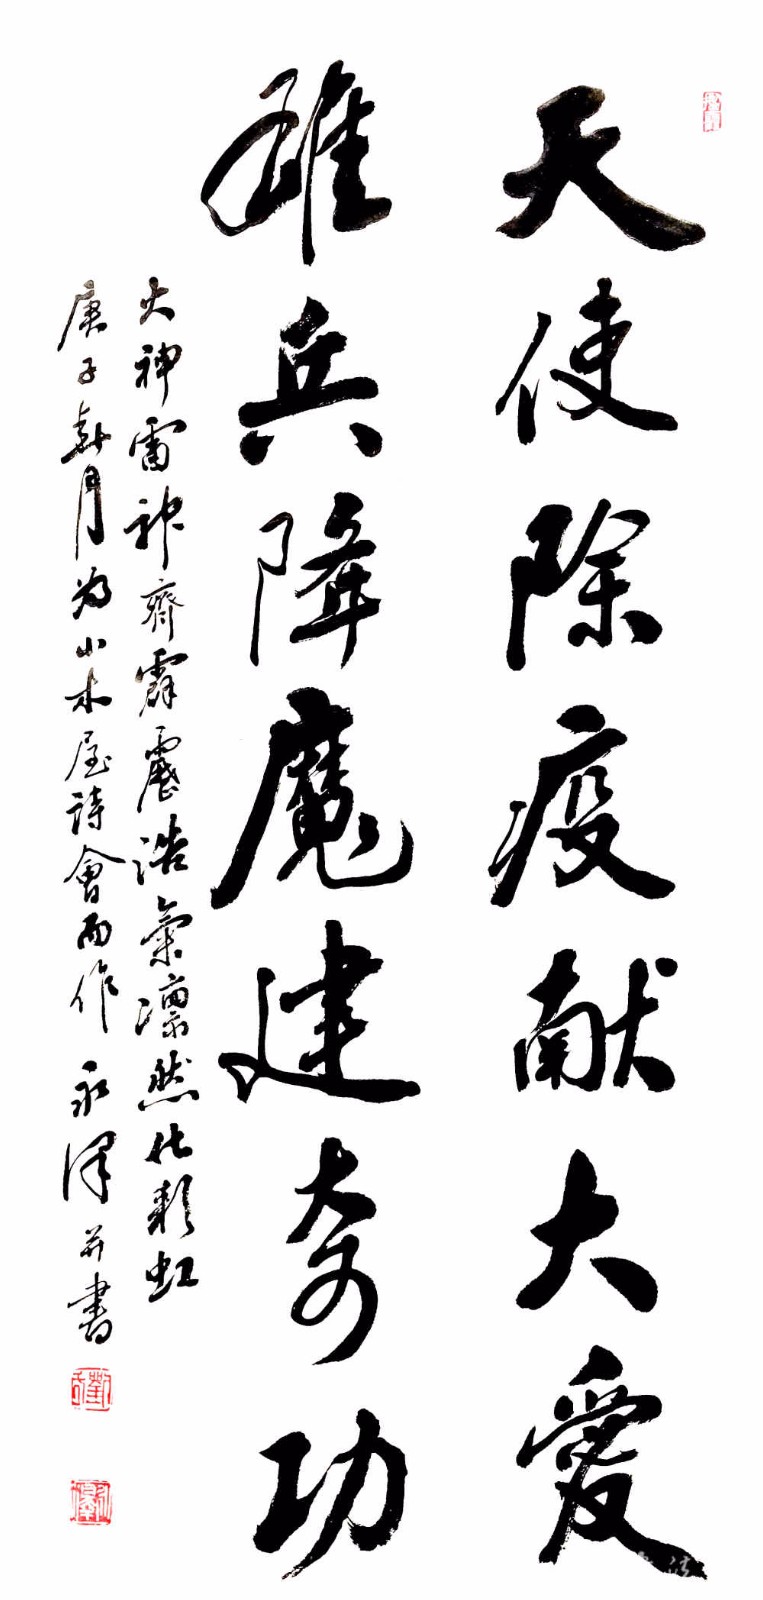 天使除疫献大愛
雄兵降魔建奇功
火神雷神齊霹靂浩氣凛然化彩虹
庚子春月为小木屋詩會而作 永澤并書